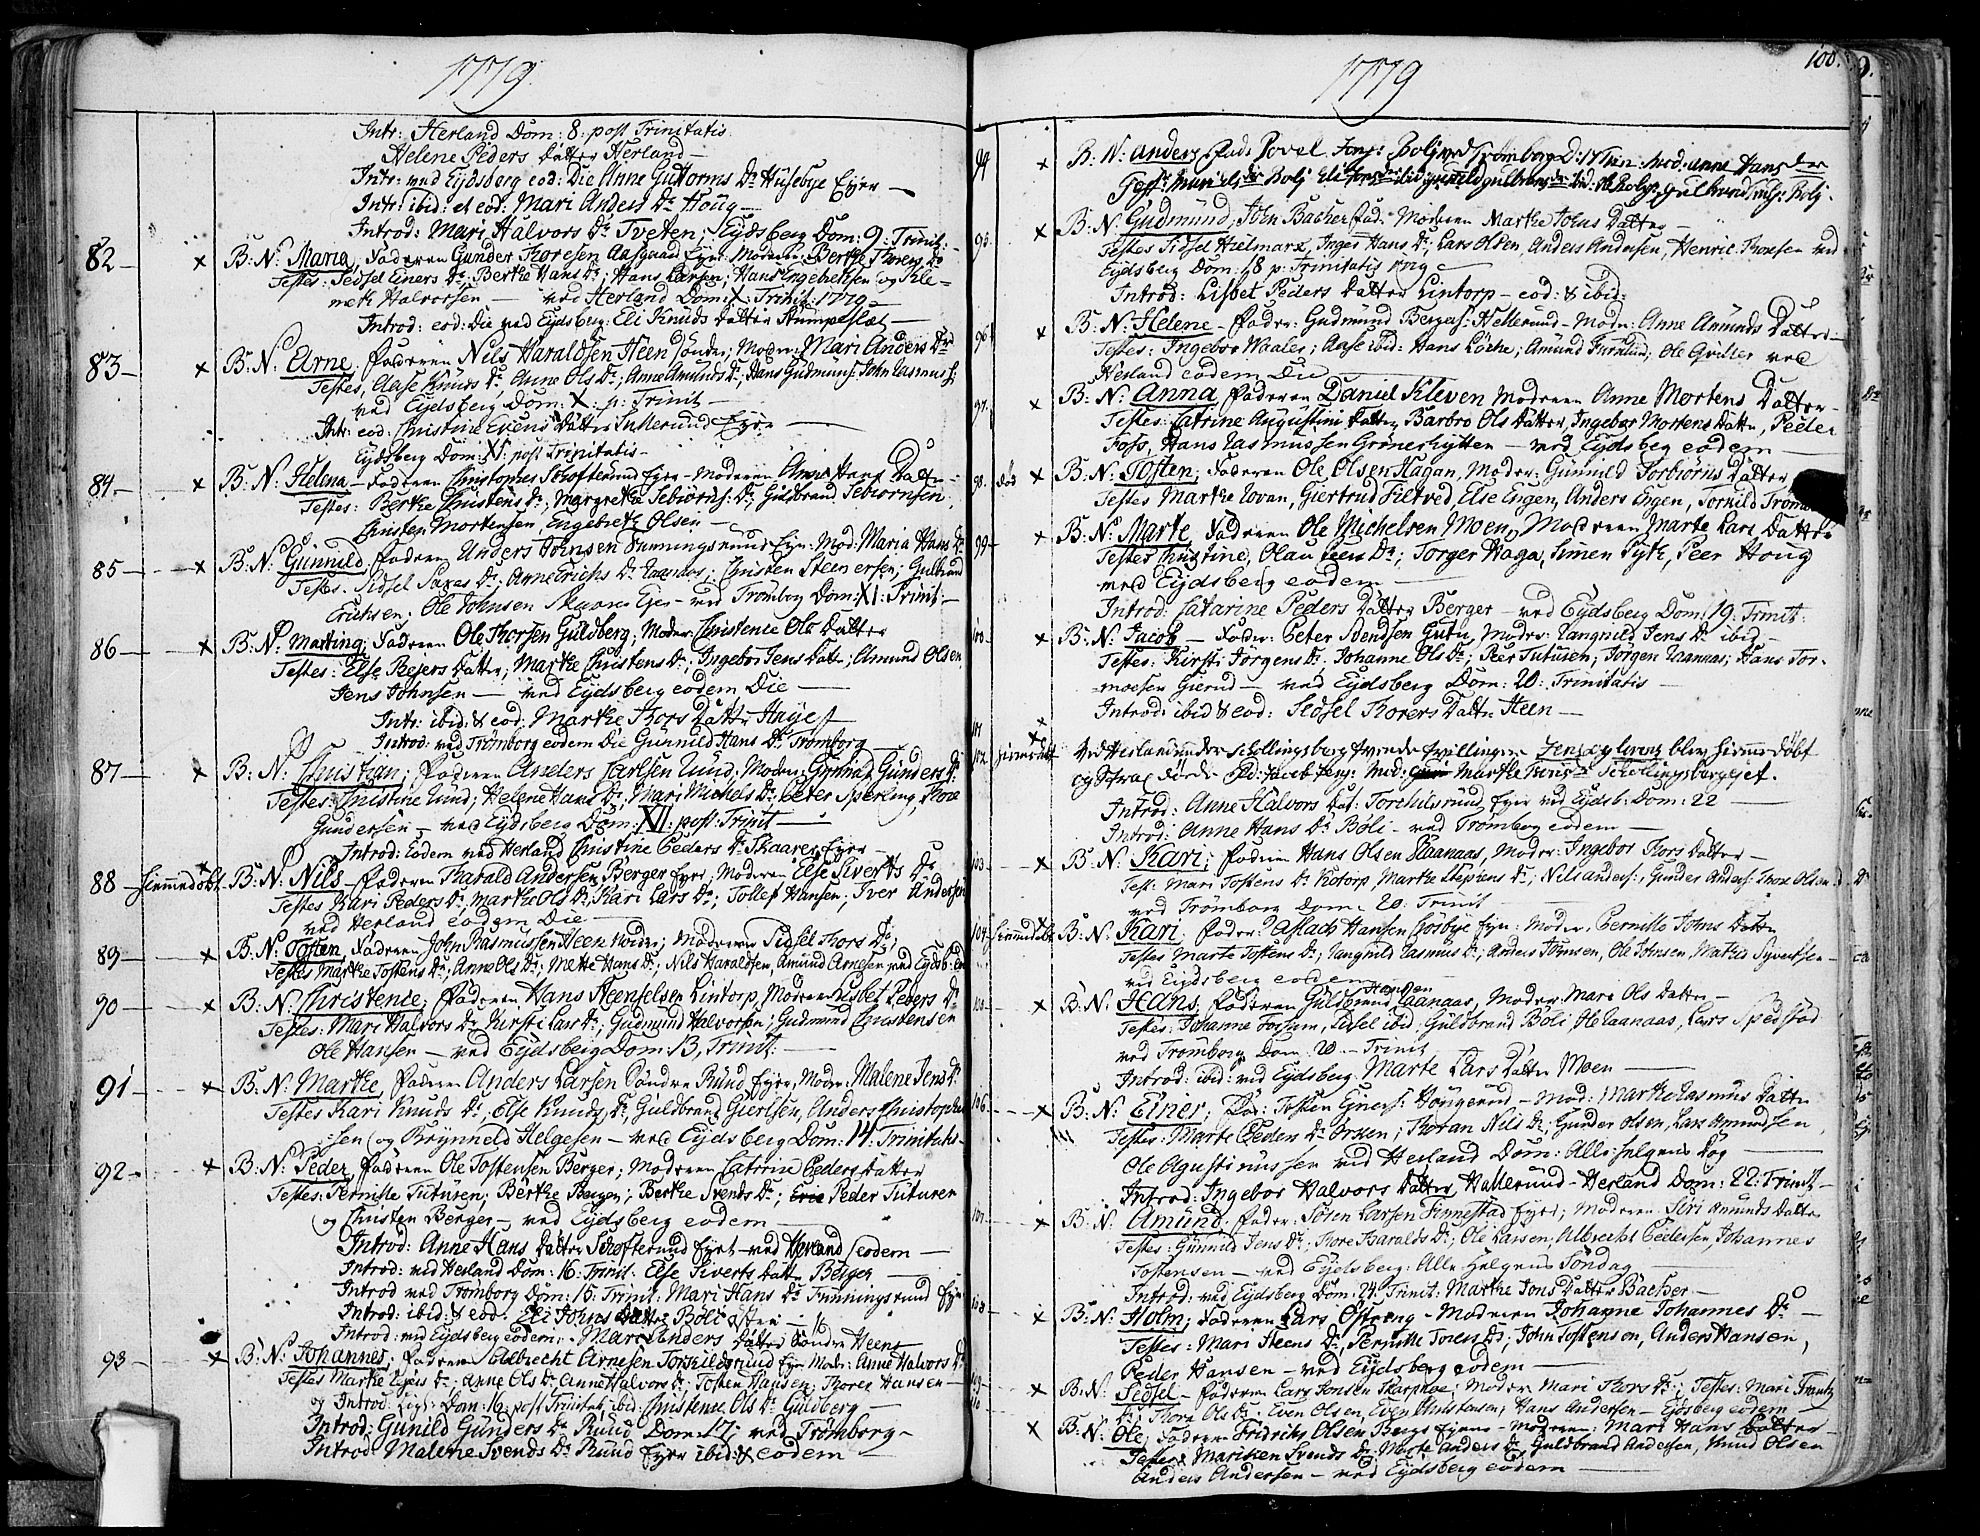 1779
Intr: Herland Dom: 8: post Trinitatis
Helene Peders Datter Herland—
Intr: ved Eydsberg eod: Die Anne Guttorms Dr Husebye Eyer—
Intr: ibid: et eod: Mari Anders Dr Houg—
Introd: Mari Halvors Dr Tveten; Eydsberg Dom: 9: Trinit:
82— × B: N: Maria, Faderen Gunder Toresen Aasgaard Eyer Moderen Berthe Thores Dr
Testes: Sedsel Einers Dr Berthe Hans Dr; Hans Larsen, Hans Ingebretsen og Kle-
meth Halvorsen— ved Herland Dom: X: Trinit: 1779—
Introd: eod: Die ved Eydsberg: Eli Knuds Datter Stumpeslæt—
83— × B: N: Arne, Faderen Nils Haraldsen Heen Sondre; Moder: Mari Anders Dr
Testes, Aase Knuds Dr, Anne Ols Dr; Anne Amunds Dr; Hans Gudmuns: John Rasmuss:
ved Eydsberg Dom: X: p: Trinit—
Intr: eod: Christine Evens Datter Eyer—
Eydsberg Dom: XI: post Trinitatis—
84— × B: N: Helena— Faderen Christopher Skofterund Eyer— Moderen Anne Hans Datter—
Testes: Berthe Christens Dr, Margrethe Tebiørns: Dr; Gulbrand Tebiørnsen,
Christen Mortensen, Engebreth Olsen—
85— × B: N: Gunnild, Faderen Anders Johnsen Eyer: Mod: Maria Hans Dr
Testes: Sidsel Saxes Dr; Anne Erichs Dr Raanaas; Christen Steenersen; Gulbrand
Erichsen; Ole Johnsen Skaaren Eyer— ved Trømborg Dom: XI: Trinit—
86— × B: N: Marting; Faderen Ole Thorsen Guldberg; Moder: Christense Ols Datter
Testes: Else Peders Datter; Marthe Christens Dr; Ingebor Jens Datter; Amund Olsen
Jens Johnsen— ved Eydsberg eodem Die—
Intr: ibid: & eod: Marthe Thors Datter Haye
Introd: ved Trømborg eodem Die Gunnild Hans Dr Trømborg—
87— × B: N: Christian; Faderen Anders Carlsen Lund; Moder: Gunnild Gunders Dr
Testes: Christine Lund; Helene Hans Dr; Mari Michels Dr; Peter Sperling, Thore
Gundersen— ved Eydsberg Dom: XII: post: Trinit—
Introd: Eodem ved Herland Christine Peders Dr Skaaren Eyer—
88— hiemedøbt × B: N: Nils— Faderen Harald Andersen Berger Eyer; Moderen Else Siverts Dr
Testes Kari Peders Dr, Marthe Ols Dr; Kari Lars Dr; Tollef Hansen; Iver Andersen
ved Herland eodem Die—
89— × B: N: Tosten, Faderen John Rasmussen Heen Nordre; Moderen Sidsel Thors Dr;
Testes Marthe Tostens Dr; Anne Ols Dr; Mette Hans Dr; Nils Haraldsen, Amund Arnesen ved Eydsb: eod
90— × B: N: Christense; Faderen Hans Steenselsen Lintorp, Moderen Lisbet Peders Dr
Testes: Mari Halvors Dr Kirsti Lars Dr; Gudmund Halvorsen; Gudmund Christensen
Ole Hansen— ved Eydsberg Dom: 13, Trinit:—
91— × B: N: Marthe, Faderen Anders Larsen Søndre Rund Eyer, Moder: Malene Jens Dr
Testes Kari Knuds Dr; Else Knuds Dr; Guldbrand Gierlsen, Anders Christopher-
sen og Brynneld Helgesen— ved Eydsberg Dom: 14: Trinitatis—
92— × B: N: Peder, Faderen Ole Tostensen Berger; Moderen Catrine Peders Datter
Testes: Pernille Tuturen; Berthe Berger; Berthe Svends Dr; Peder Tuturen
og Christen Berger— ved Eydsberg eodem—
Introd: Anne Hans Datter Skofterund Eyet— ved Herland eodem—
Introd: ved Herland Dom: 16: Trinit: Else Siverts Datter Berger—
Introd ved Trømborg Dom: 15: Trinit: Mari Hans Dr Eyer
Introd: ibid: & eod: Eli Johns Datter Böli østen— 16
Introd: ved Eydsberg eodem,— Mari Anders Datter Søndre Heen
93— × B: N: Johannes; Faderen Albrecht Arnesen Torkildsrund Eyer Moder: Anne Halvors Dr
Testes Marthe Dr; Anne Ols Dr: Anne Halvors Dr; Tosten Hansen; Thoren Hansen—
og Introd: Dom: 16: post Trinitat, ibid: Christense Ols Dr Guldberg—
Introd: Gunild Gunders Dr Ruud Dom: 17: ved Trømborg—
Introd: Malene Svends Dr Ruud Eyer ibid: & eodem—
1779
100.
94 × B: N: Anders, Fad: Povel Jens: Bolj ved Trømborg D: 17 Trin: Mod: Anne Hans dtr
95. × B: N: Gudmund, John Bacher Fad: Moderen Marthe Johns Datter—
Testes Sidsel Hielmark, Inger Hans Dr; Lars Olsen, Anders Andersen, Henric Thoesen ved
Eydsberg Dom: 18 p: Trinitatis 1779
Introd: Lisbet Peders Datter Lintorp— eod: & ibid:
96 × B: N: Helene— Fader: Gudmund Bergers: Hellerund— Moder: Anne Amunds Datter—
Testes: Ingebor Waaler; Aase ibid: Hans Löche; Amund Furulund; Ole Griller ved
Herland eodem Die—
97. × B: N: Anna, Faderen Daniel Kleven Moderen Anne Mortens Datter—
Testes: Catrine Augustini Datter, Barbro Ols Datter, Ingebor Mortens Datter, Peter
Foss, Hans Rasmussen Grönerhytten— ved Eydsberg eodem—
98. død × B: N: Tosten; Faderen Ole Olsen Hagan, Moder: Gunnild Torbiørns Datter
Testes Marthe Lovan, Giertrud Filtved, Else Engen, Anders Engen, Torkild
99— × B: N: Marte, Faderen Ole Michelsen Moen, Moderen Marte Lars Datter
Testes Christine, Olau Peers Dr; Torger Haga, Simen Tyth, Peer Houg
ved Eydsberg eodem—
Introd: Catarine Peders Datter Berger— ved Eydsberg Dom: 19: Trinit:
100— × B: N: Jacob— Fader: Peter Svendsen Gutu, Moder: Rangnild Jens Dr ibid—
Testes: Kirsti Jörgens Dr; Johanne Ols Dr; Peer Tuturen; Jörgen Raanaas; Hans Tor-
moesen Gierud— ved Eydsberg Dom: 20: Trinitatis—
Introd: ibid & eod: Sedsel Thorers Datter Heen—
101 ×
102 hiemedøbt × Ved Herland under Schollingsberg tvende tvillinger Jens og Lorens blev hiemmedøbt
og Strax døde. Fad: Jacob Jens: Mod: Marthe Schollingsbergeyet.
Introd: Anne Halvors Dat: Torchilsrund Eyer ved Eydsb: Dom: 22—
Introd: Anne Hans Dr Böli— ved Trømborg eodem—
103— × B: N: Kari; Faderen Hans Olsen Raanaas, Moder: Ingebor Thors Datter—
Test: Mari Tostens Dr Kiotorp, Marthe Stephens Dr; Nils Anders:, Gunder Anders: Thore Olsen
ved Trømborg Dom: 20: Trinit—
104— hiemmedøbt × B: N: Kari, Fader: Aslach Hansen Gosbye Eyer: Moder: Pernille Johns Datter
Testes Marte Tostens Dr; Rangnild Rasmus Dr; Anders Johnsen, Ole Johnsen, Mathis Syvertsen—
ved Eydsberg eodem—
105— × B: N: Hans, Faderen Guldbrand Hansen Raanaas, Moder: Mari Ols Datter—
Testes: Johanne Forssum, Sidsel ibid, Guldbrand Böli, Ole Raanaas, Lars Spedstad
ved Trømborg Dom: 20— Trinit
Introd: ibid: ved Eydsberg: Marte Lars Datter Moen—
106— × B: N: Einer, Fad: Tosten Einers: Höugerud— Mod: Marthe Rasmus Datter
Testes: Marte Peders Dr Orsken; Thoran Nils Dr; Gunder Olsen, Lars Amundsen
Ole Agustinussen ved Herland Dom: Alle helgens Dag—
Introd: Ingebor Halvors Datter Hallerund— Herland Dom: 22: Trinit—
107— × B: N: Amund, Fader: Søren Larsen Finnestad Eyer; Moderen Siri Amunds Datter
Testes: Gunnild Jens Dr; Thore Haralds Dr; Ole Larsen, Albrecht Pedersen, Johannes
Tostensen— ved Eydsberg: Alle Helgens Søndag—
Introd: ved Eydsberg Dom: 24 Trinit: Marthe Jons Datter Bæcher—
108— × B: N: Holm; Faderen Lars Östreng— Moderen Johanne Johannes Dr—
Testes: Mari Steens Dr, Pernille Torers Dr; John Tostensen, Anders Hansen,
Peder Hansen— ved Eydsberg eodem—
109— × B: N: Sedsel— Faderen Lars Jonsen Skarphoe; Moder Mari Thors Dr; Testes: Mari Frantz
Dr; Thora Ols Dr: Even Olsen, Even Christensen, Hans Andersen— Eydsberg eodem—
10 × B: N: Ole, Faderen Fridrik Olsen Bergs Eyer— Moderen: Mari Hans Datter—
Testes: Marthen Svends Dr, Marte Anders Dr, Guldbrand Andersen, Knud Olsen
Anders Andersen— ved Eydsberg eodem—